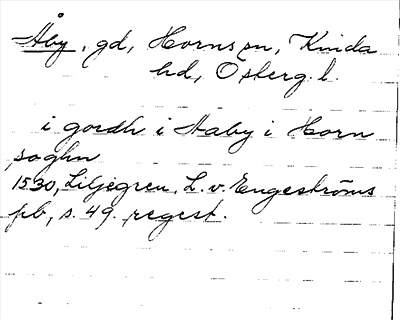 Åby, gd, Horns sn, Kinda
hd, Österg. l.
i gordh i Aaby i Horn
soghn
1530, Liljegren, L. v. Engeströms
pb, s. 49. regest.